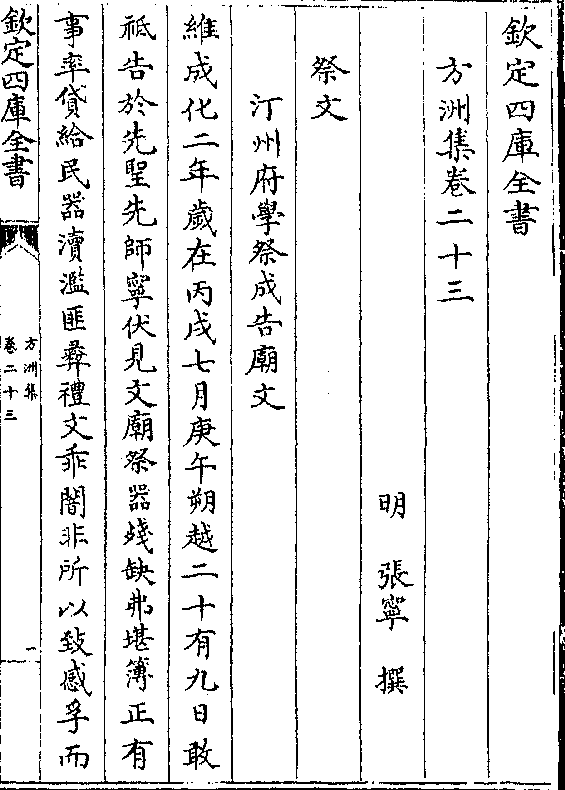 欽定四庫全書
方洲集卷二十三
明 張寧 撰
祭文
汀州府學祭成告廟文
維成化二年歲在丙戌七月庚午朔越二十有九日敢
祗告於先聖先師寧伏見文廟祭器殘缺弗堪簿正有
事率貸給民器瀆濫匪彞禮文乖闇非所以致感孚而
欽定四庫全書
方洲集
卷二十三
一